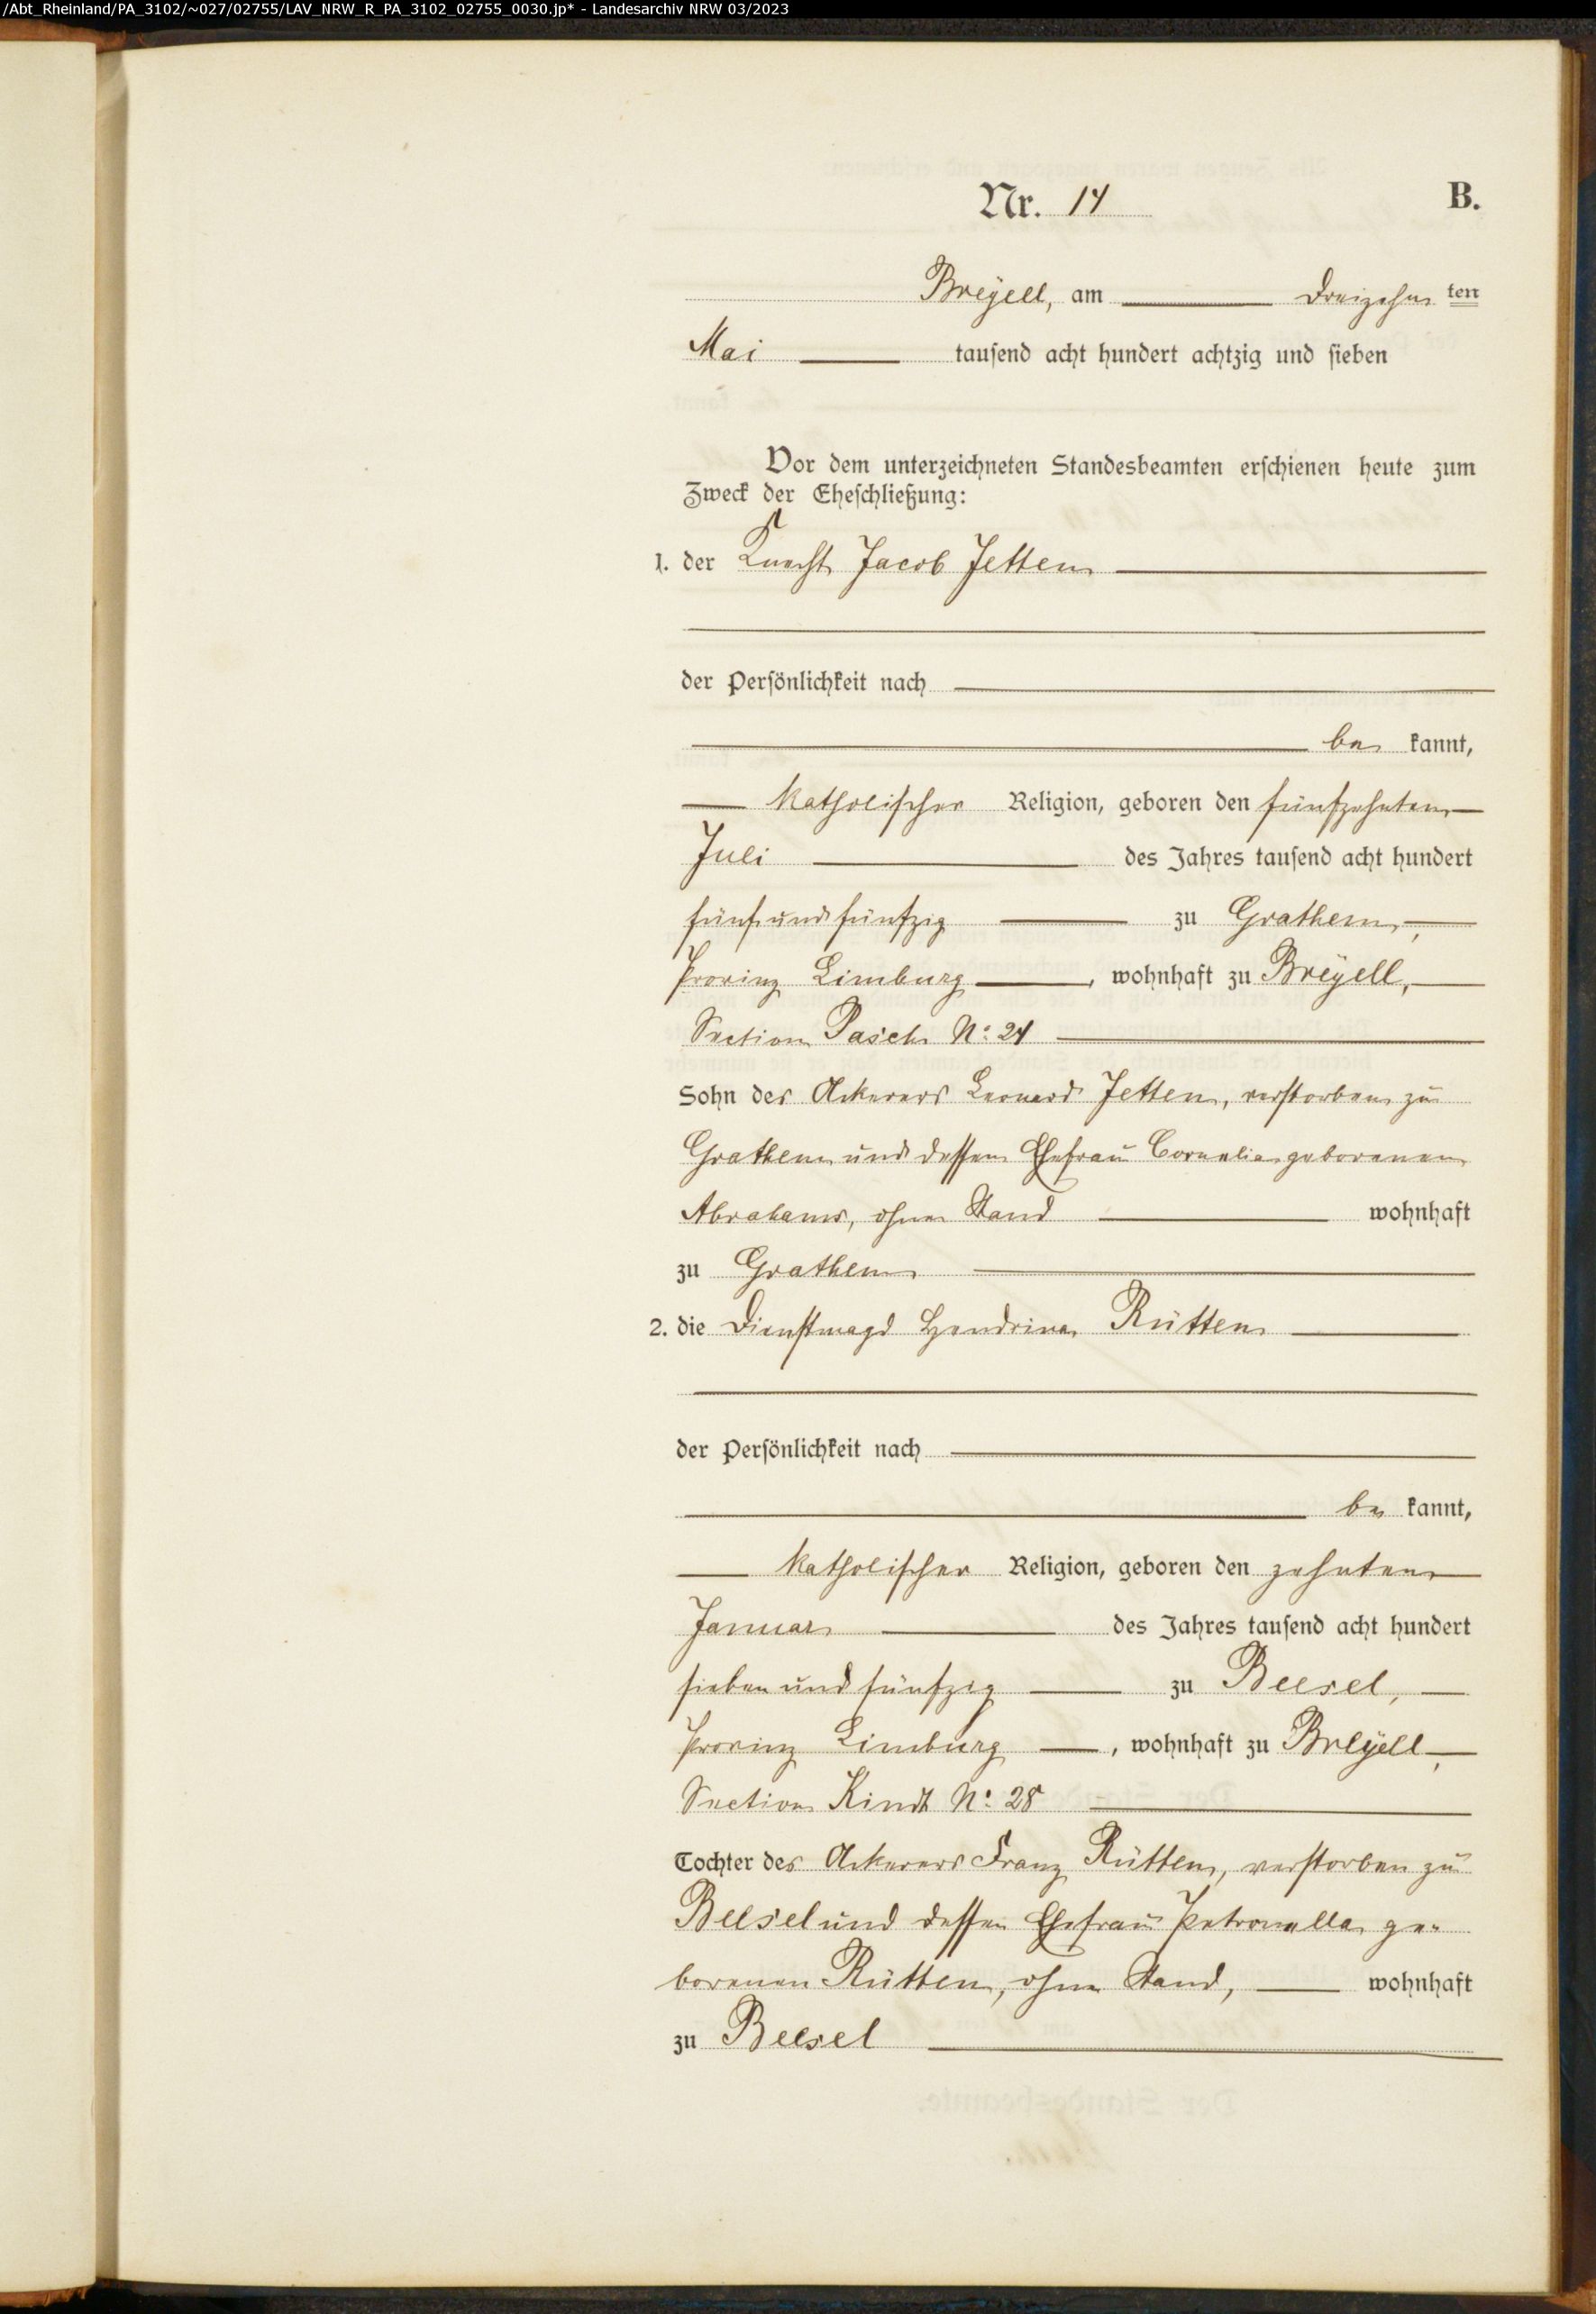 /Abt_Rheinland/PA_3102/~027/02755/LAV_NRW_R_PA_3102_02755_0030.jp* - Landesarchiv NRW 03/2023
Nr. 14 B.
Breÿell, am Dreizehn ten
Mai tausend acht hundert achtzig und sieben
Vor dem unterzeichneten Standesbeamten erschienen heute zum
Zweck der Eheschließung:
1. der Knecht Jacob Jetten
der Persönlichkeit nach
be kannt,
katholischer Religion, geboren den fünfzehnten
Juli des Jahres tausend acht hundert
fünf und fünfzig zu Grathem,
Provinz Limburg, wohnhaft zu Breÿell,
Section Pasch No: 24
Sohn des Ackerers Leonard Jetten, verstorben zu
Grathem und dessen Ehefrau Cornelia geborenen
Abrahams, ohne Stand wohnhaft
zu Grathem
2. die Dienstmagd Hendrina Rütten
der Persönlichkeit nach
be kannt,
katholischer Religion, geboren den zehnten
Januar des Jahres tausend acht hundert
sieben und fünfzig zu Beesel,
Provinz Limburg, wohnhaft zu Breÿell,
Section Kindt No: 28
Tochter des Ackerers Franz Rütten, verstorben zu
Beesel und dessen Ehefrau Petronella ge-
borenen Rütten, ohne Stand, wohnhaft
zu Beesel